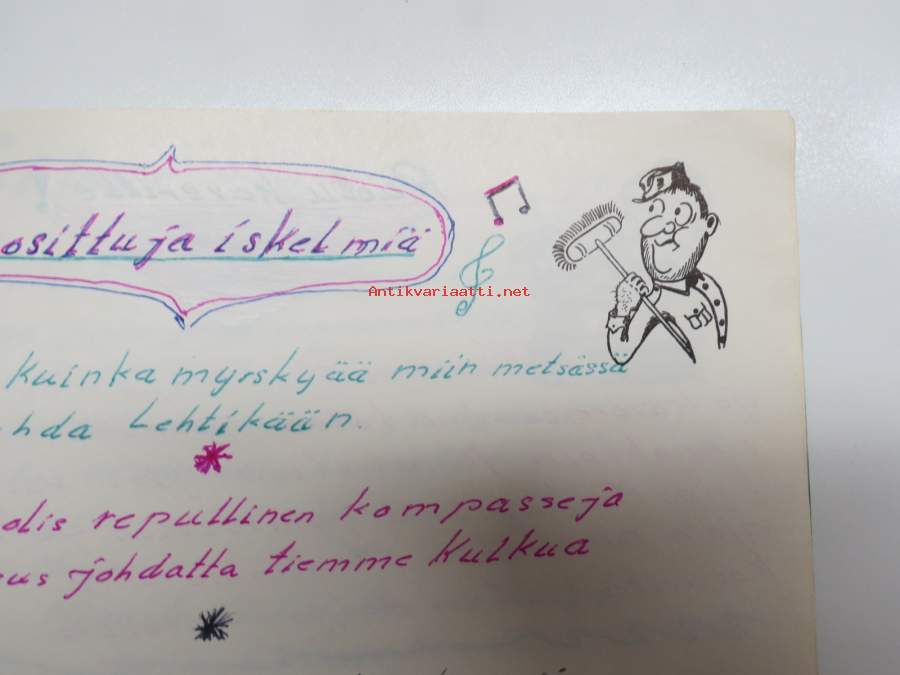 osittuja iskelmiä
Antikvariaatti.net
Kuinka myrskyää miin metsässä
hda Lehtikään.
olis repullinen kompasseja
eus johdatta tiemme Kulkua